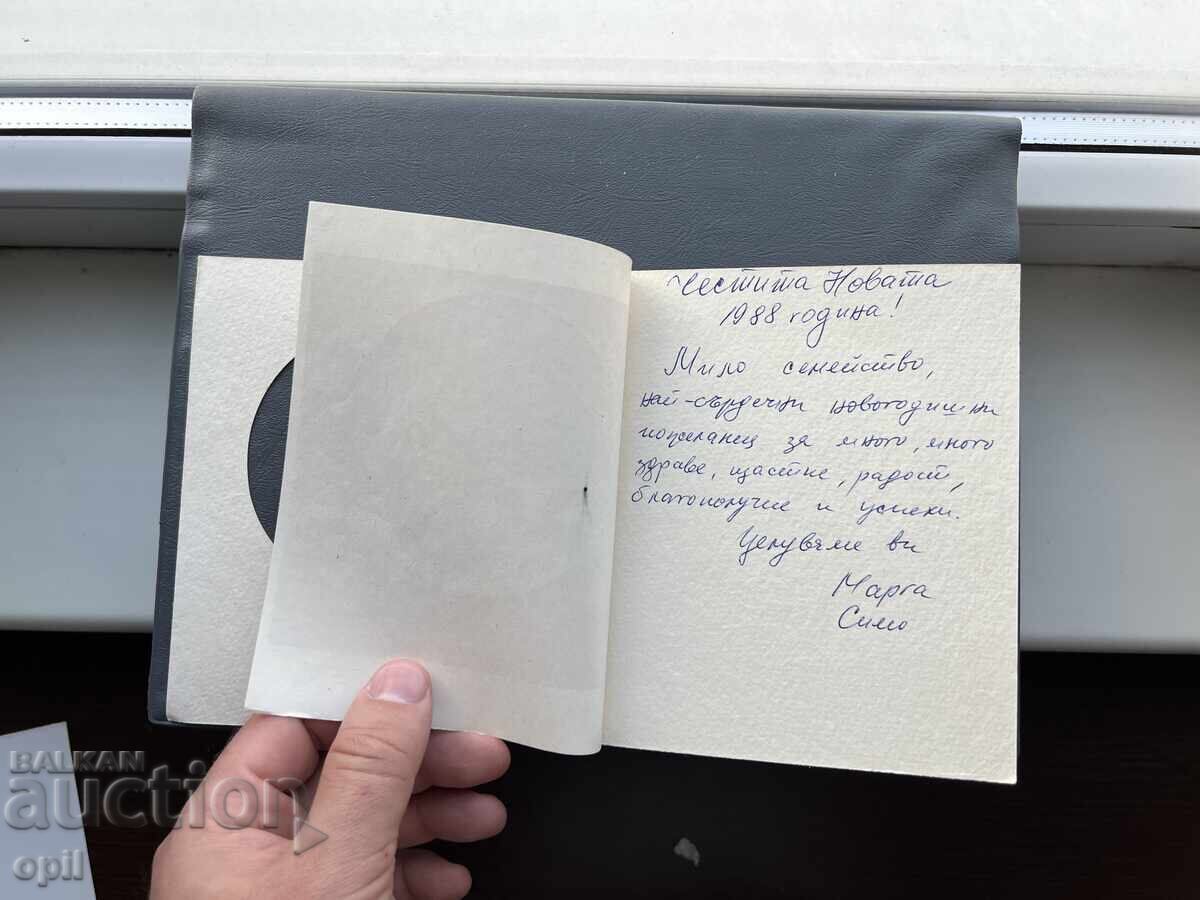 Честита Новата
1988 година!
Мило семейство,
най-сърдечни новогодишни
пожелания за много, много
здраве, щастие, радост,
благополучие и успехи.
Целуваме ви
Марга
Симо
BALKAN
auction
opil